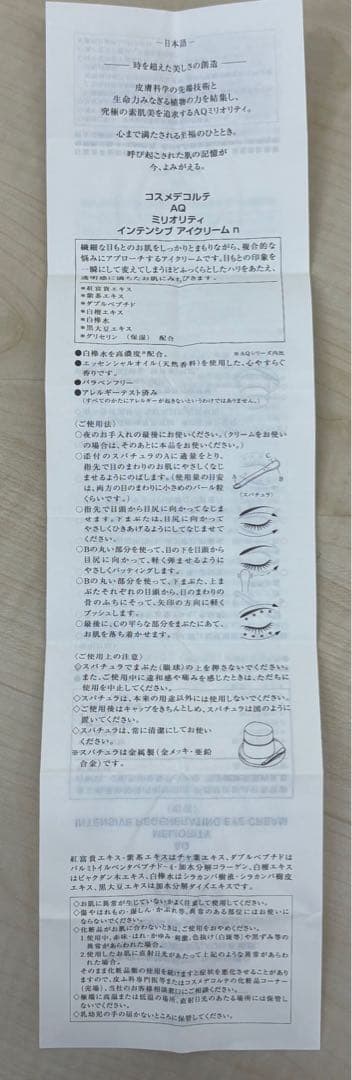 ―日本語―
―― 時を超えた美しさの創造 ――
皮膚科学の先端技術と
生命力みなぎる植物の力を結集し、
究極の素肌美を追求するAQミリオリティ。
心まで満たされる至福のひととき。
呼び起こされた肌の記憶が
今、よみがえる。
コスメデコルテ
AQ
ミリオリティ
インテンシブ アイクリーム n
繊細な目もとのお肌をしっかりとまもりながら、複合的な
悩みにアプローチするアイクリームです。目もとの印象を
一瞬にして変えてしまうほどふっくらとしたハリをあたえ、
透明感に満ちたお肌にみちびきます。
*紅富貴エキス
*紫茶エキス
*ダブルペプチド
*白檀エキス
*白樺水
*黒大豆エキス
*グリセリン （保湿） 配合
●白樺水を高濃度※配合。 ※AQシリーズ内比
●エッセンシャルオイル(天然香料)を使用した、心やすらぐ
香りです。
●パラベンフリー
●アレルギーテスト済み
(すべてのかたにアレルギーが起きないというわけではありません。)
〈ご使用法〉
○夜のお手入れの最後にお使いください。（クリームをお使い
の場合は、そのあとに本品をお使いください。）
○添付のスパチュラのAに適量をとり、
指先で目のまわりのお肌にやさしくなじ
ませるようにのばします。（使用量の目安
は、両方の目のまわりに小さめのパール粒
くらいです。）
C
A
B
(スパチュラ)
○指先で目頭から目尻に向かってなじま
せます。下まぶたは、目尻に向かって
やさしくひきあげるようにしてなじませて
ください。
○Bの丸い部分を使って、目の下を目頭から
目尻に向かって、軽く弾ませるように
やさしくパッティングします。
○Bの丸い部分を使って、下まぶた、上ま
ぶたそれぞれの目頭から、目のまわりの
骨のふちにそって、矢印の方向に軽く
プッシュします。
○最後に、Cの平らな部分をまぶたにあて、
お肌を落ち着かせます。
〈ご使用上の注意〉
◇スパチュラでまぶた（眼球）の上を押さないでください。
また、ご使用中に違和感や痛みを感じたときは、ただちに
使用を中止してください。
◇スパチュラは、本来の用途以外には使用しないでください。
◇ご使用後はキャップをきちんとしめ、スパチュラは図のように
置いてください。
◇スパチュラは、常に清潔にしてお使い
ください。
※スパチュラは金属製（金メッキ・亜鉛
合金）です。
紅富貴エキス・紫茶エキスはチャ葉エキス、ダブルペプチドは
パルミトイルペンタペプチド-4・加水分解コラーゲン、白檀エキス
はビャクダン木エキス、白樺水はシラカンバ樹液・シラカンバ樹皮
エキス、黒大豆エキスは加水分解ダイズエキスです。
◇お肌に異常が生じていないかよく注意して使用してください。
◇傷やはれもの・湿しん・かぶれ等、異常のある部位にはお使いに
ならないでください。
◇化粧品がお肌に合わないときは、ご使用をおやめください。
1.使用中、赤味・はれ・かゆみ・刺激、色抜け（白斑等）や黒ずみ等の
異常があらわれた場合。
2.使用したお肌に直射日光があたって上記のような異常があらわ
れた場合。
そのまま化粧品類の使用を続けますと症状を悪化させることがあり
ますので、皮ふ科専門医等またはコスメデコルテの化粧品コーナー
（売場）、当社のお客様相談窓口にご相談ください。
◇極端に高温または低温の場所、直射日光のあたる場所には保管し
ないでください。
◇乳幼児の手の届かないところに保管してください。